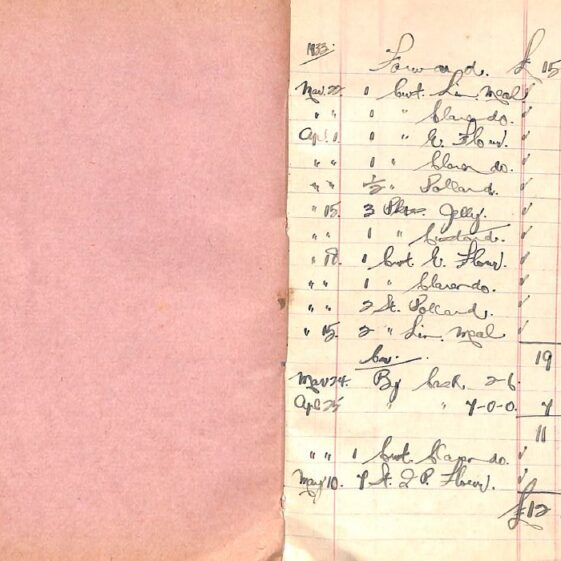 1933.
Forward. £ 15
Mar. 22. 1 Cwt. Lin. Meal ✓
" " 1 " Clarendo. ✓
Apl. 1 1 " E. Flour. ✓
" " 1 " Clarendo. ✓
" " ½ " Pollard. ✓
" 15. 3 Pkts. Jelly. ✓
" " 1 " Custard. ✓
" 1 Cwt E. Flour. ✓
" " 1 " Clarendo. ✓
" " 2 St. Pollard. ✓
" 15. 2 " Lin. Meal ✓
19
Mar 24. By Cash 2-6
Apl 25 " " 7-0-0. 7
11
" " 1 Cwt. Clarendo. ✓
May 10. 7 St. 2 P. Flour. ✓
£12